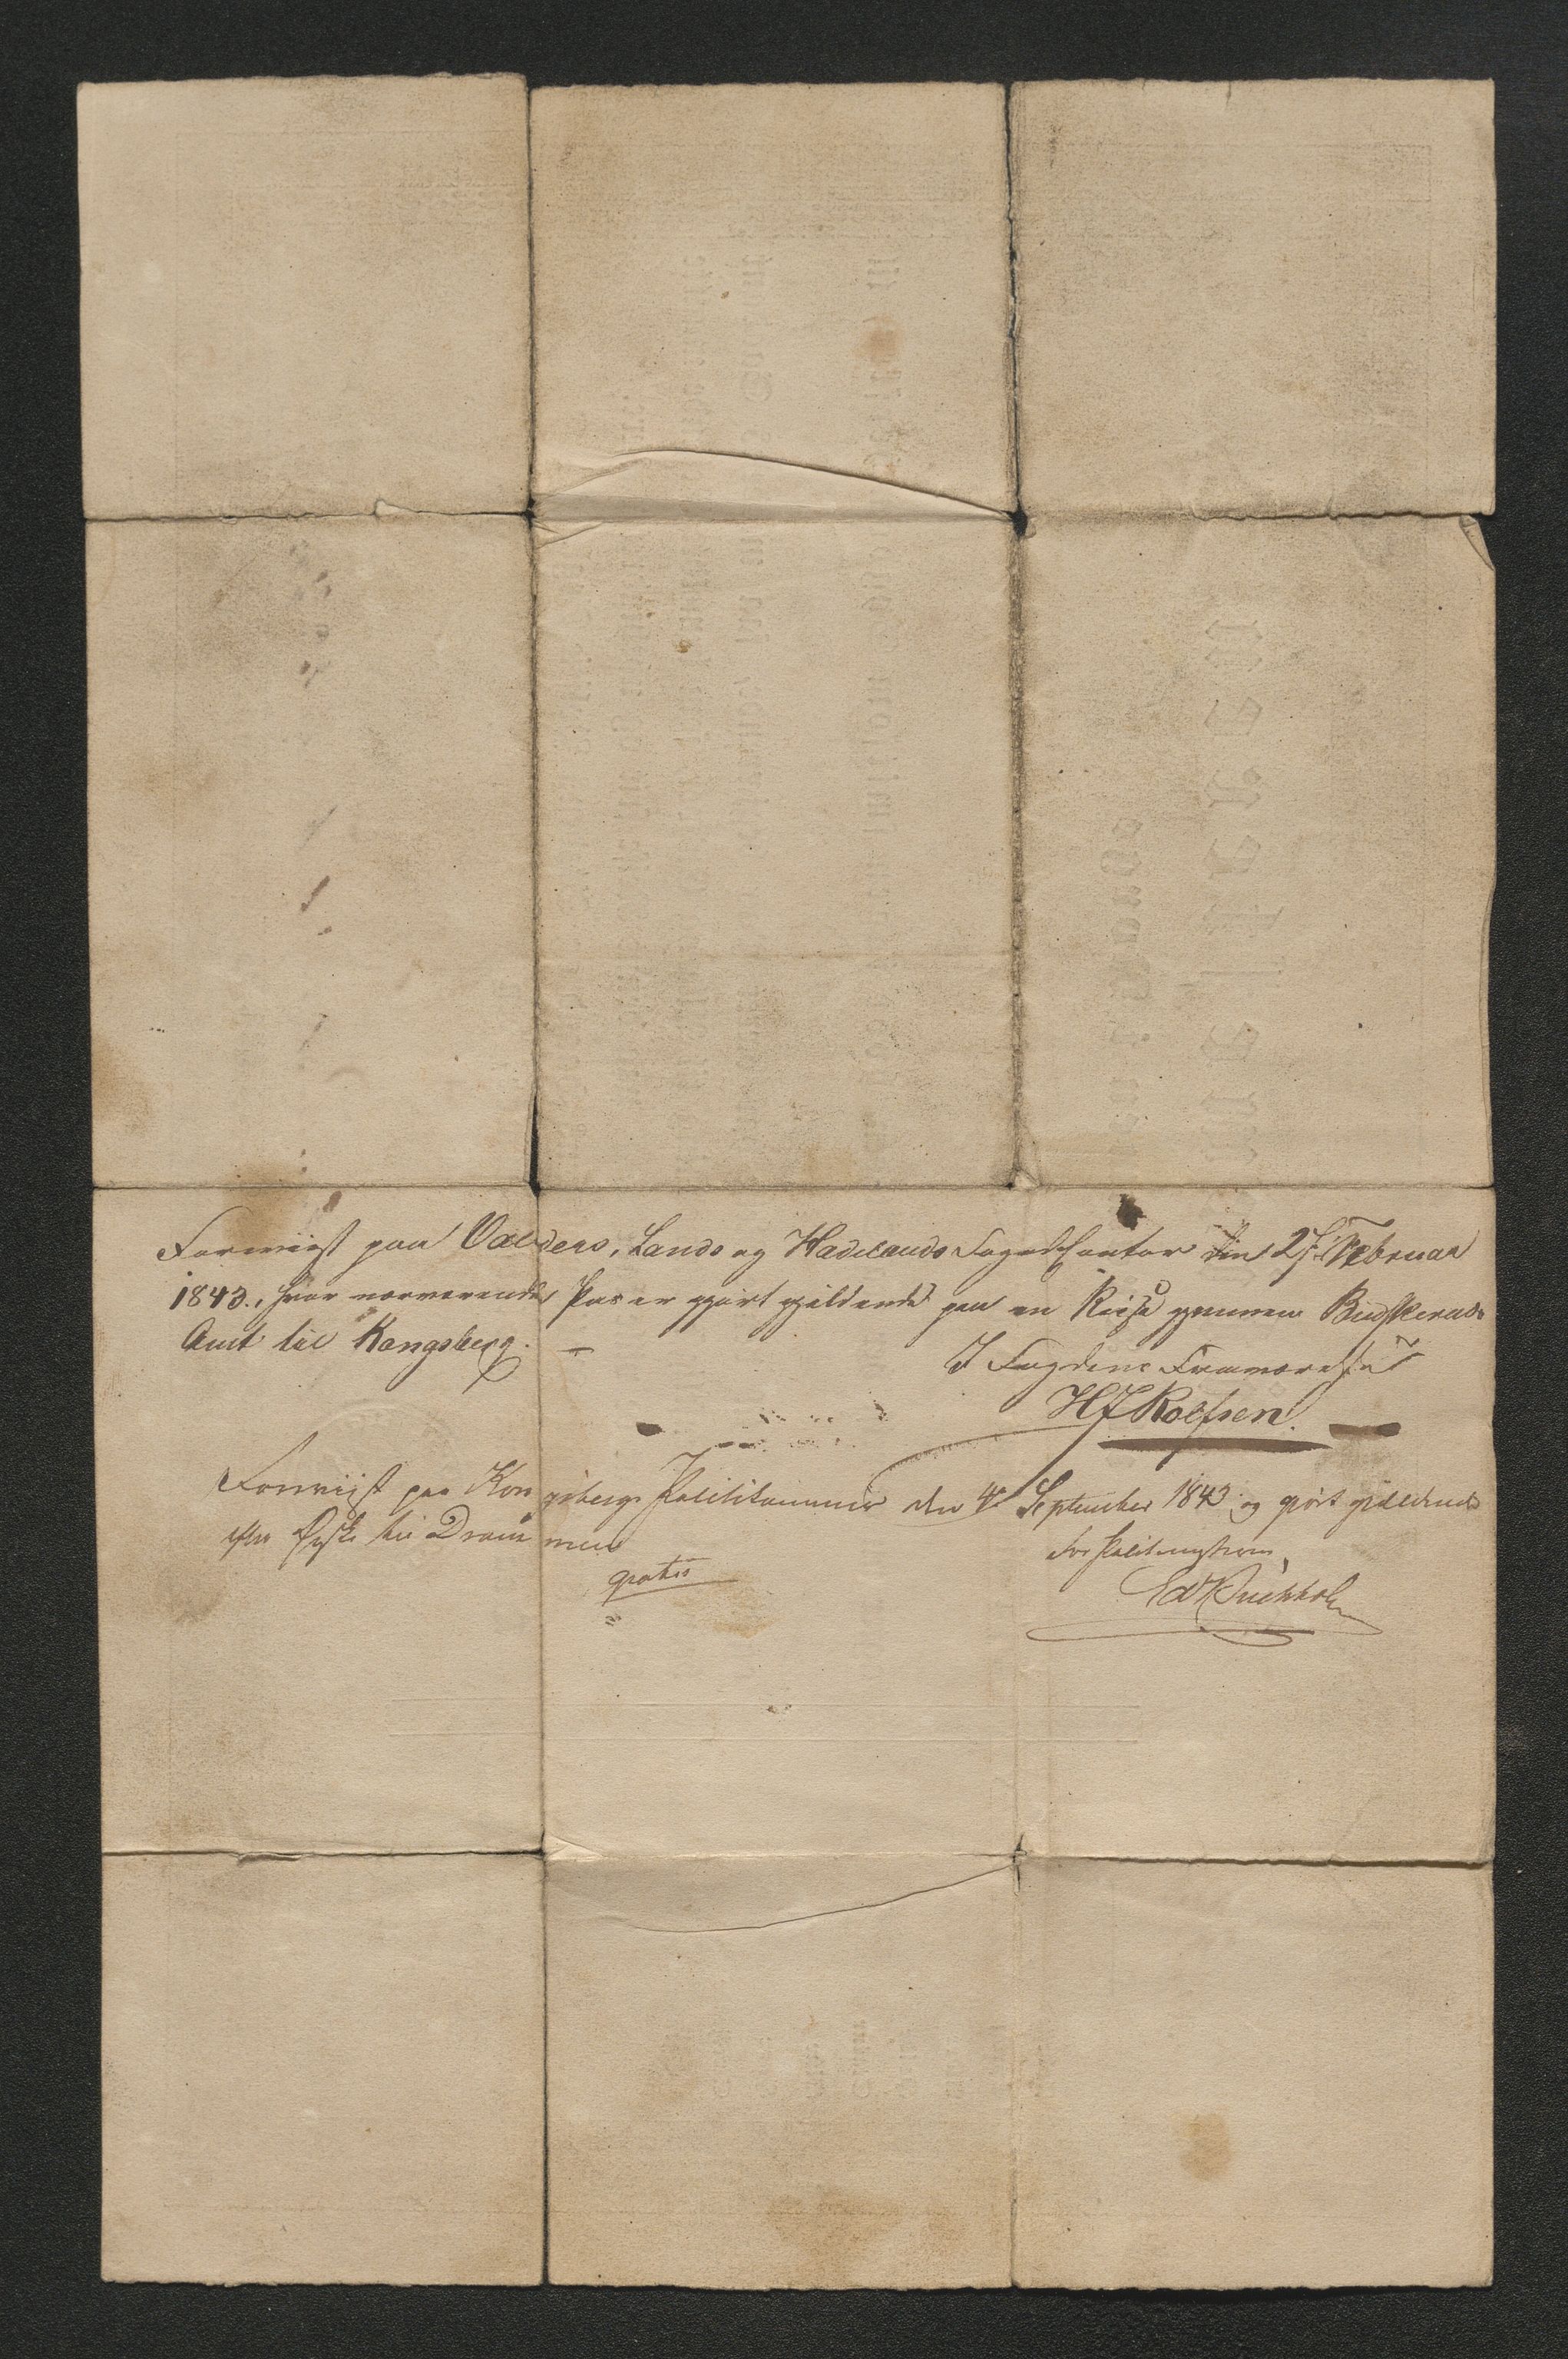 Foreviist paa Valders, Lands og Hadelands Fogedcontor den 27de Februar
1843., hvor nærværende Pas er gjort gjeldende paa en Reise gjennem Buskeruds
Amt til Kongsberg. —
I Fogdens Fraværelse
HJRolfsen.
Foreviist paa Kongsbergs Politikammer den 4de September 1843 og gjort gjeldende
efter Ønske til Drammen
For Politimesteren,
gratis
Ed Buchholz